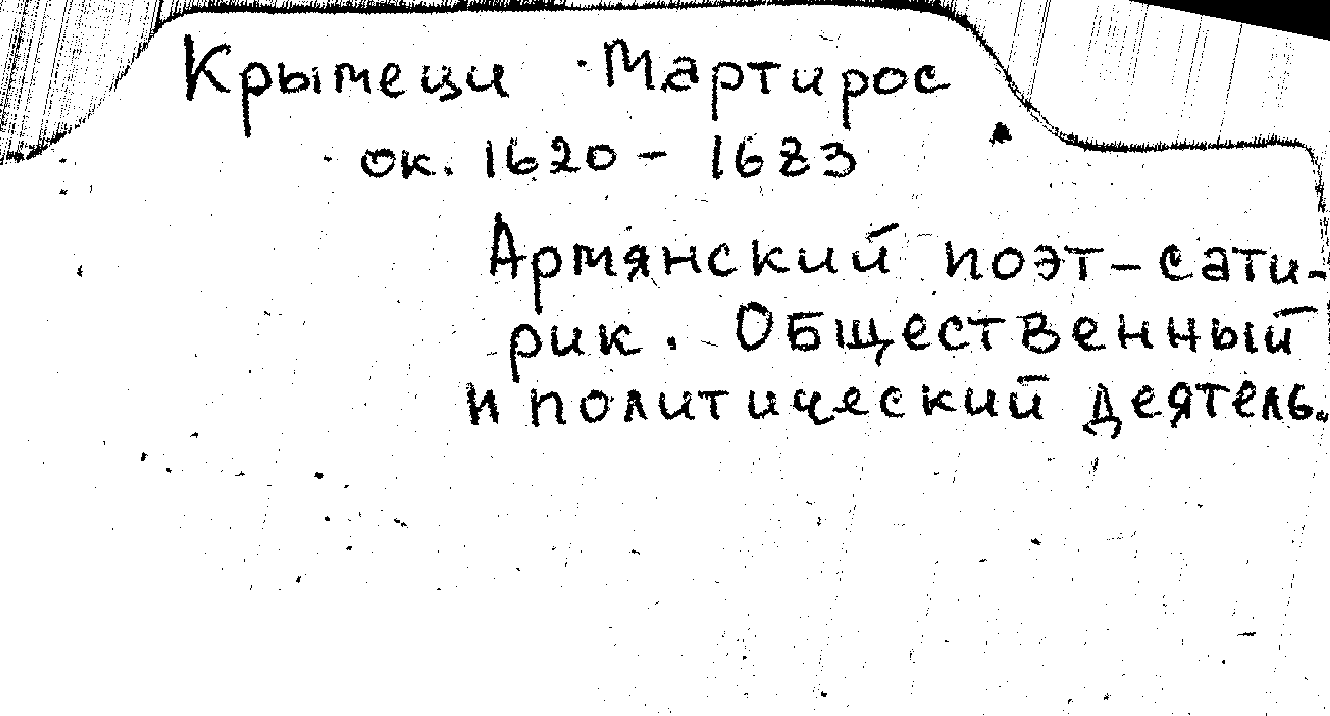 Крымеци Мартирос
ок. 1620 - 1683
Армянский поэт-сати-
рик. Общественный
и политический деятель.